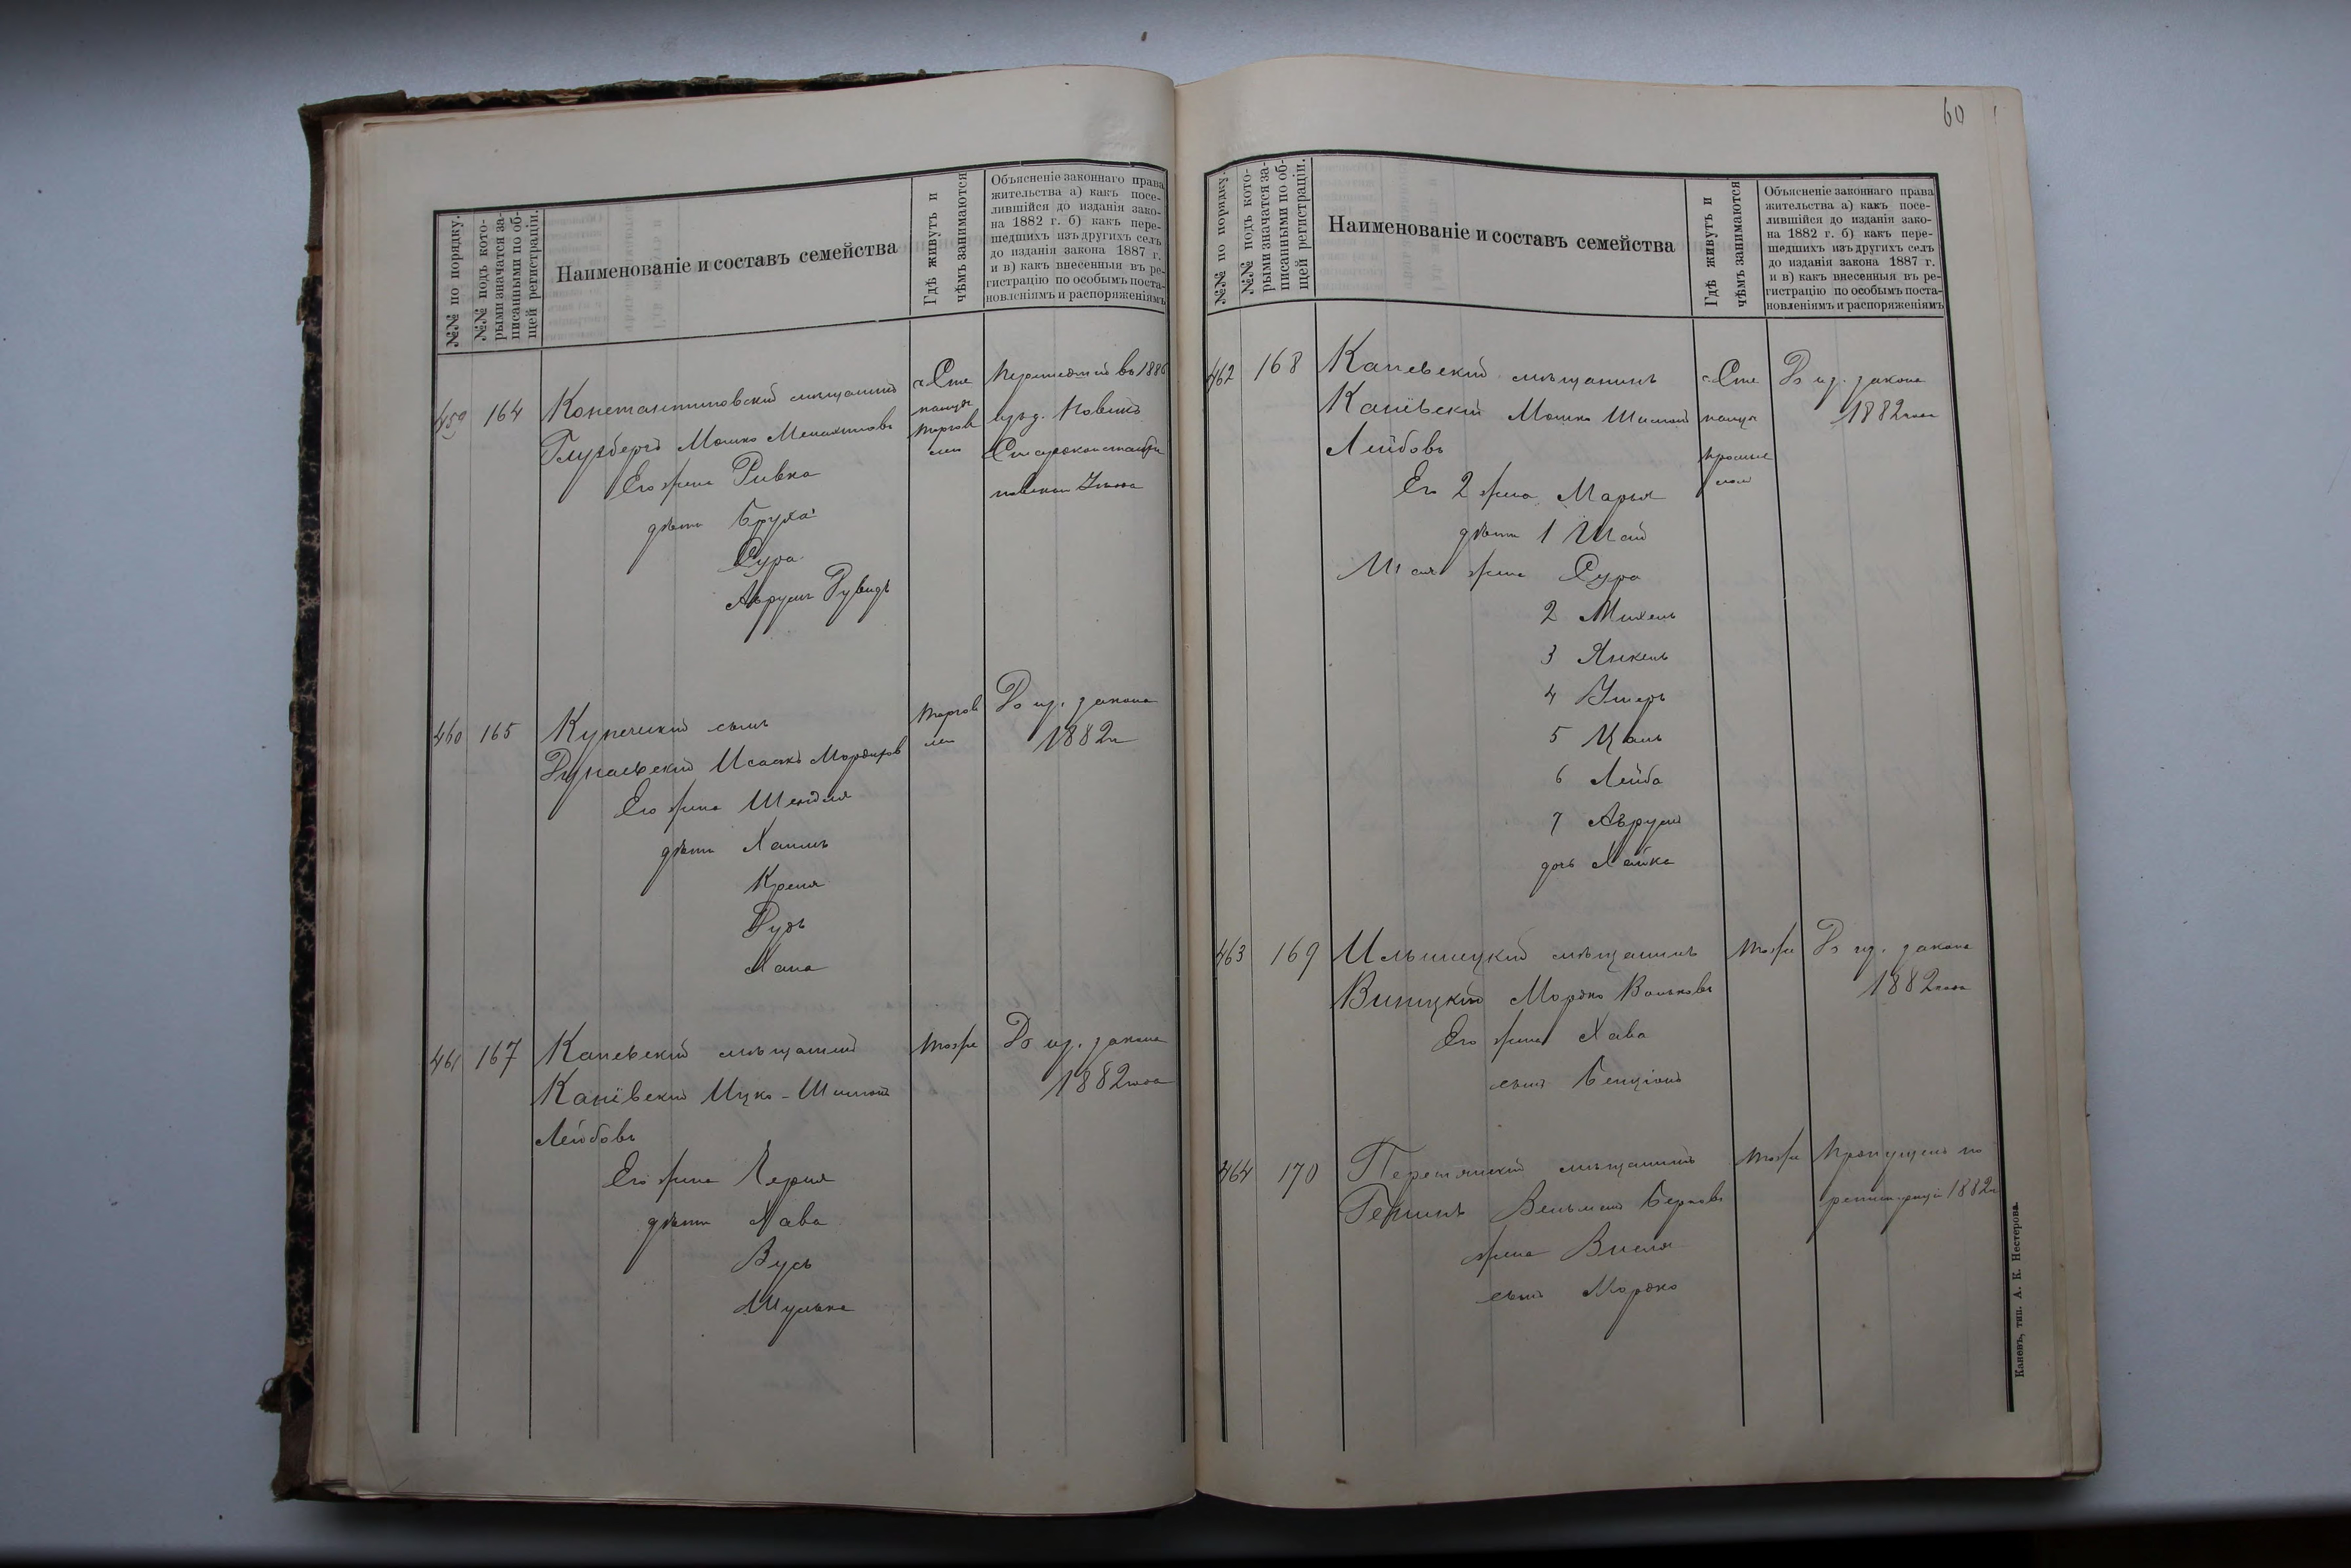 №№ по порядку.
№№ подъ кото-
рыми значатся за-
писанными по об-
щей регистраціи.
Наименованіе и составъ семейства
Гдѣ живутъ и
чѣмъ занимаются
Объясненіе законнаго права
жительства а) какъ посе-
лившійся до изданія зако-
на 1882 г. б) какъ пере-
шедшихъ изъ другихъ селъ
до изданія закона 1887 г.
и в) какъ внесенныя въ ре-
гистрацію по особымъ поста-
новленіямъ и распоряженіямъ
459 164 Константиновскій мѣщанинъ
Мошко
Его жена Ривка
дѣти Бруха
Сура
Аврумъ
с. Сте
панцы
торгов
лей
Перешедшій въ 1886
изъ д.
460 165 Купеческій сынъ
Дунаевскій Исаакъ Мордковъ
Его жена Шейндля
дѣти Хаимъ
Креня
Рудь
Хана
торгов
лей
До из. закона
1882 г
461 167 Каневскій мѣщанинъ
Каніівскій Ицко-Шимон
Лейбовъ
Его жена Черня
дѣти Хава
Бусь
Шулька
тоже
До из. закона
1882 года
60
№№ по порядку.
№№ подъ кото-
рыми значатся за-
писанными по об-
щей регистраціи.
Наименованіе и составъ семейства
Гдѣ живутъ и
чѣмъ занимаются
Объясненіе законнаго права
жительства а) какъ посе-
лившійся до изданія зако-
на 1882 г. б) какъ пере-
шедшихъ изъ другихъ селъ
до изданія закона 1887 г.
и в) какъ внесенныя въ ре-
гистрацію по особымъ поста-
новленіямъ и распоряженіямъ
462 168 Каневскій мѣщанинъ
Каніівскій Мошко Шимон
Лейбовъ
Его 2 жена Марья
дѣти 1 Шай
Шая жена Сура
2 Михель
3 Янкель
4 Ушеръ
5 Цаль
6 Лейба
7 Аврумъ
дочь Хайка
с. Сте
панцы
До из. закона
1882 года
463 169 Ильинецкій мѣщанинъ
Виницкій Мордко Вольковъ
Его жена Хава
сынъ Бенціонъ
тоже
До из. закона
1882 года
464 170 мѣщанинъ
Вельмъ Берковъ
жена
сынъ Мордко
тоже
Пропущенъ по
регистраціи 1882 г
Каневъ, тип. А. К. Нестерова.